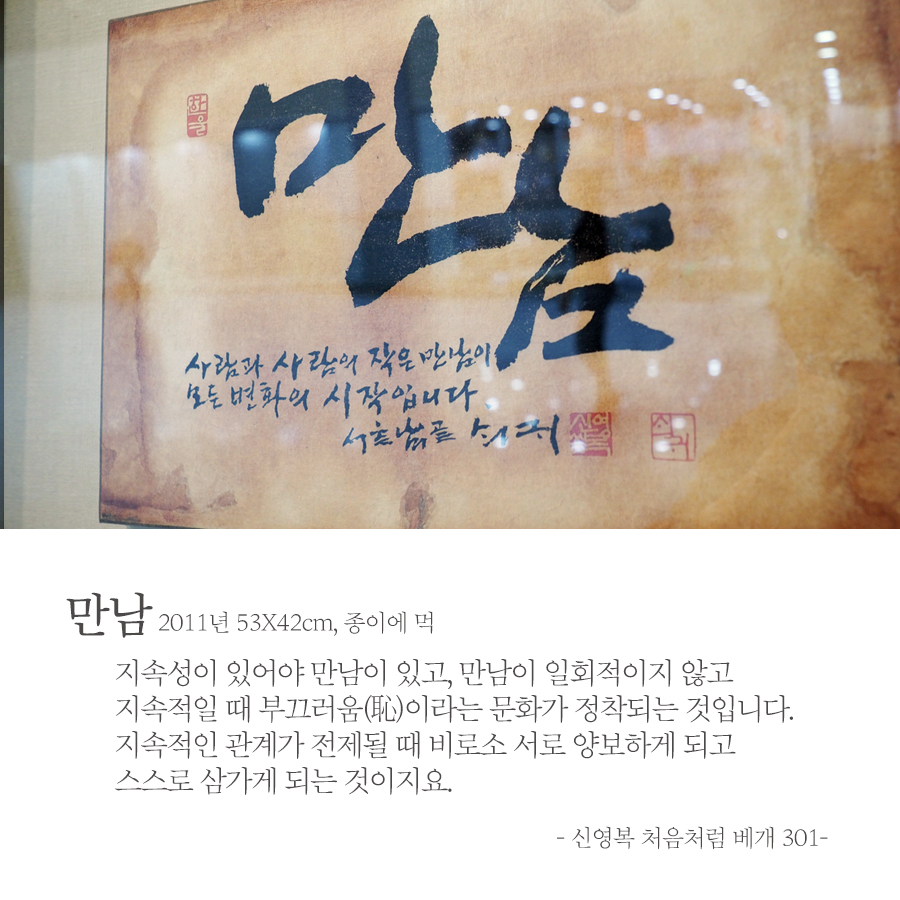 만남
사람과 사람의 작은 만남이
모든 변화의 시작입니다
쇠귀
쇠귀
만남 2011년 53X42cm, 종이에 먹
지속성이 있어야 만남이 있고, 만남이 일회적이지 않고
지속적일 때 부끄러움(恥)이라는 문화가 정착되는 것입니다.
지속적인 관계가 전제될 때 비로소 서로 양보하게 되고
스스로 삼가게 되는 것이지요.
- 신영복 처음처럼 베개 301-